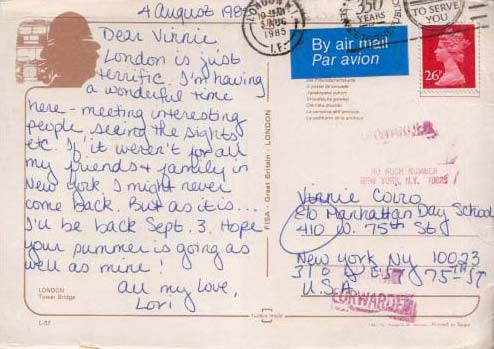 4 August 1985
Dear Vinnie
London is just
terrific. I'm having
a wonderful time
here - meeting interesting
people, seeing the sights
etc. If it weren't for all
my friends & family in
New York I might never
come back. But as it is...
I'll be back Sept. 3. Hope
your summer is going as
well as mine!
All my love,
Lori
LONDON
Tower Bridge
L-57
FISA - Great Britain - LONDON
LONDON
1985
I.E.
350
YEARS
TO SERVE
YOU
By air mail
Par avion
26P
NO SUCH NUMBER
NEW YORK, N.Y.
Vinnie
c/o Manhattan Day School
410 W. 75th St
New York NY 10023
310 75TH ST
U.S.A
FORWARDED
Printed in Spain